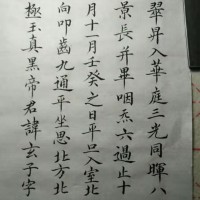 翠昇入華庭三光同暉八
景長并畢咽炁六過止十
月十一月壬癸之日平旦入室北
向叩齒九通平坐思北方北
極玉真黑帝君諱玄子字